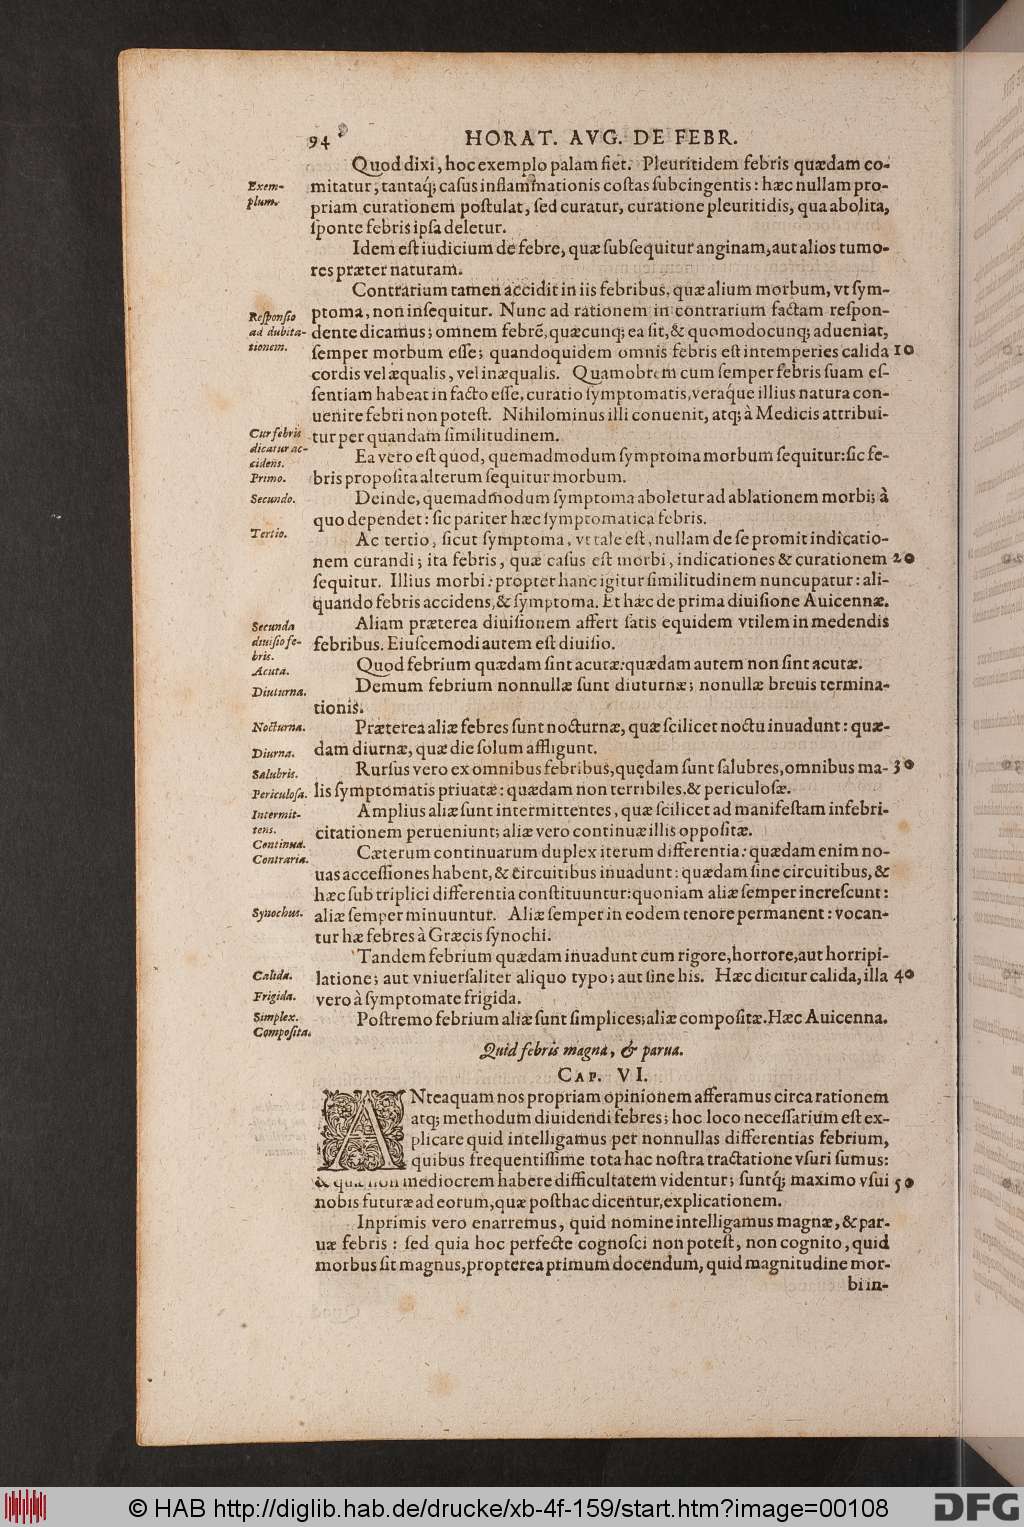 94 HORAT. AVG. DE FEBR.
Quod dixi, hoc exemplo palam fiet. Pleuritidem febris quædam co-
Exem- mitatur, tantaq́; casus inflammationis costas subcingentis: hæc nullam pro-
plum. priam curationem postulat, sed curatur, curatione pleuritidis, qua abolita,
sponte febris ipsa deletur.
Idem est iudicium de febre, quæ subsequitur anginam, aut alios tumo-
res præter naturam.
Contrarium tamen accidit in iis febribus, quæ alium morbum, vt sym-
Responsio ptoma, non insequitur. Nunc ad rationem in contrarium factam respon-
ad dubita- dente dicamus; omnem febrē, quæcunq; ea sit, & quomodocunq; adueniat,
tionem. semper morbum esse; quandoquidem omnis febris est intemperies calida 10
cordis vel æqualis, vel inæqualis. Quamobrem cum semper febris suam es-
sentiam habeat in facto esse, curatio symptomatis, veraq́ue illius natura con-
uenire febri non potest. Nihilominus illi conuenit, atq; à Medicis attribui-
Cur febris tur per quandam similitudinem.
dicatur ac- Ea vero est quod, quemadmodum symptoma morbum sequitur: sic fe-
cidens.
Primo. bris proposita alterum sequitur morbum.
Secundo. Deinde, quemadmodum symptoma aboletur ad ablationem morbi; à
quo dependet: sic pariter hæc symptomatica febris.
Tertio. Ac tertio, sicut symptoma, vt tale est, nullam de se promit indicatio-
nem curandi; ita febris, quæ casus est morbi, indicationes & curationem 20
sequitur. Illius morbi: propter hanc igitur similitudinem nuncupatur: ali-
quando febris accidens, & symptoma. Et hæc de prima diuisione Auicennæ.
Secunda Aliam præterea diuisionem affert satis equidem vtilem in medendis
diuisio fe- febribus. Eiuscemodi autem est diuisio.
bris.
Acuta. Quod febrium quædam sint acutæ: quædam autem non sint acutæ.
Diuturna. Demum febrium nonnullæ sunt diuturnæ; nonullæ breuis termina-
tionis.
Nocturna. Præterea aliæ febres sunt nocturnæ, quæ scilicet noctu inuadunt: quæ-
Diurna. dam diurnæ, quæ die solum affligunt.
Salubris. Rursus vero ex omnibus febribus, quędam sunt salubres, omnibus ma- 30
Periculosa. lis symptomatis priuatæ: quædam non terribiles, & periculosæ.
Intermit- Amplius aliæ sunt intermittentes, quæ scilicet ad manifestam infebri-
tens. citationem perueniunt; aliæ vero continuæ illis oppositæ.
Continua.
Contraria. Cæterum continuarum duplex iterum differentia: quædam enim no-
uas accessiones habent, & circuitibus inuadunt: quædam sine circuitibus, &
hæc sub triplici differentia constituuntur: quoniam aliæ semper increscunt:
Synochus. aliæ semper minuuntur. Aliæ semper in eodem tenore permanent: vocan-
tur hæ febres à Græcis synochi.
Tandem febrium quædam inuadunt cum rigore, horrore, aut horripi-
Calida. latione; aut vniuersaliter aliquo typo; aut sine his. Hæc dicitur calida, illa 40
Frigida. vero à symptomate frigida.
Simplex. Postremo febrium aliæ sunt simplices; aliæ compositæ. Hæc Auicenna.
Composita.
Quid febris magna, & parua.
CAP. VI.
ANteaquam nos propriam opinionem afferamus circa rationem
atq; methodum diuidendi febres; hoc loco necessarium est ex-
plicare quid intelligamus per nonnullas differentias febrium,
quibus frequentissime tota hac nostra tractatione vsuri sumus:
& quæ non mediocrem habere difficultatem videntur; suntq́; maximo vsui 50
nobis futuræ ad eorum, quæ posthac dicentur, explicationem.
Inprimis vero enarremus, quid nomine intelligamus magnæ, & par-
uæ febris: sed quia hoc perfecte cognosci non potest, non cognito, quid
morbus sit magnus, propterea primum docendum, quid magnitudine mor-
bi in-
© HAB http://diglib.hab.de/drucke/xb-4f-159/start.htm?image=00108
DFG